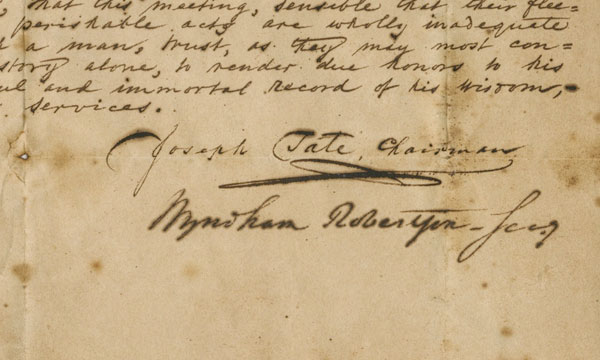 that this meeting, sensible that their flee=
perishable acts are wholly inadequate
a man, trust, as they may most con=
story alone, to render due honors to his
ul and immortal record of his wisdom,
services.
Joseph Tate, Chairman
Wyndham Robertson - Secy